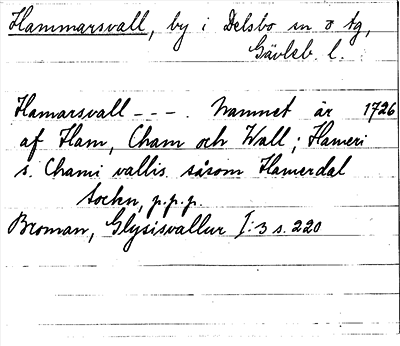 Hammarsvall, by i Delsbo sn o tg,
Gävleb. l.
Hamarsvall - - - . Namnet är 1726
af Ham, Cham och Wall; Hameri
s. Chami vallis såsom Hamerdal
sochn, p.p.p.
Broman, Glysisvallur I:3 s. 220